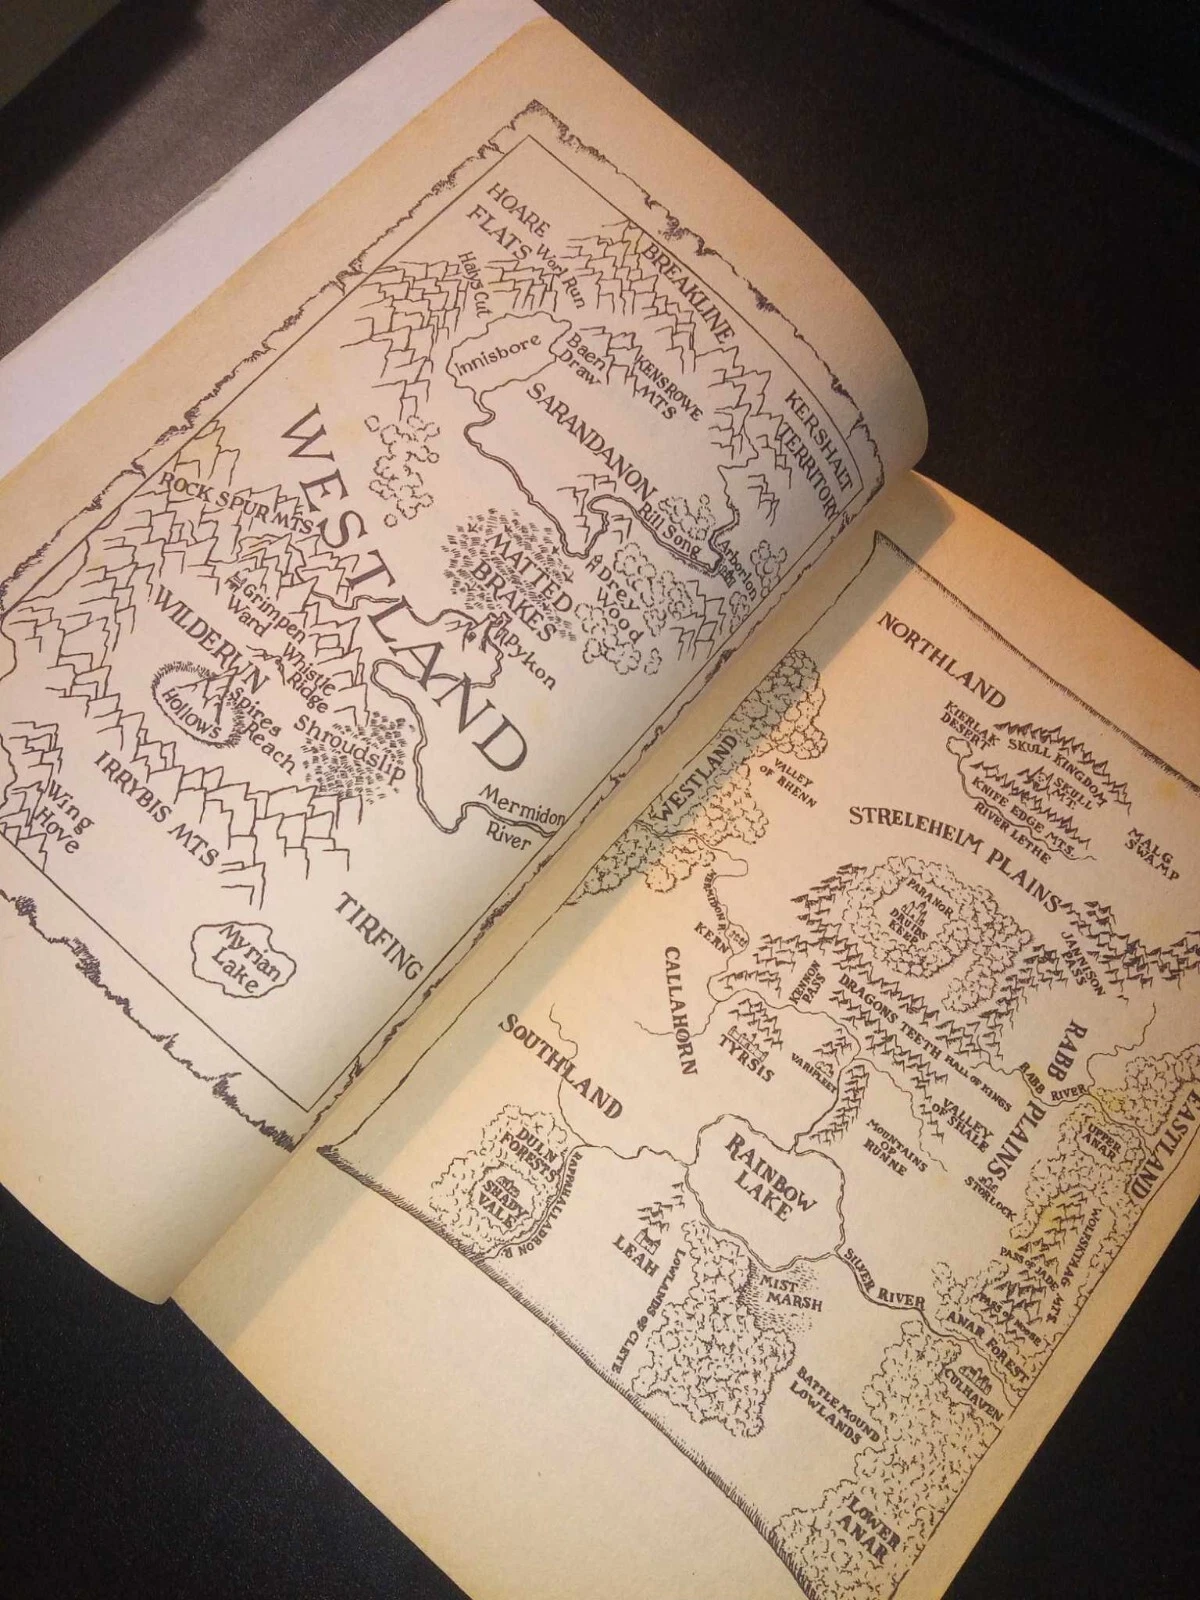 HOARE
FLATS
Worl Run
Halys Cut
BREAKLINE
Innisbore
Baen
Draw
KENSROWE
MTS
KERSHALT
TERRITORY
SARANDANON
Rill Song
Arborlon
WESTLAND
ROCK SPUR MTS
MATTED
BRAKES
Drey
Wood
Pykon
Grimpen
Ward
WILDERUN
Whistle
Ridge
Spires
Reach
Hollows
Shroudslip
Wing
Hove
IRRYBIS MTS
Mermidon
River
TIRFING
Myrian
Lake
NORTHLAND
KIERLAK
DESERT
SKULL KINGDOM
SKULL
MT.
KNIFE EDGE MTS.
RIVER LETHE
MALG
SWAMP
WESTLAND
VALLEY
OF RHENN
STRELEHEIM PLAINS
PARANOR
DRUIDS
KEEP
JANNISON
PASS
MERMIDON R.
KERN
CALLAHORN
KENNON
PASS
DRAGONS TEETH
HALL OF KINGS
TYRSIS
VARFLEET
RABB
PLAINS
RABB
RIVER
VALLEY
OF SHALE
MOUNTAINS
OF
RUNNE
STORLOCK
UPPER
ANAR
EASTLAND
SOUTHLAND
DULN
FORESTS
SHADY
VALE
RAPPAHALLADRON R.
RAINBOW
LAKE
LEAH
LOWLANDS OF CLETE
MIST
MARSH
SILVER RIVER
WOLFSKTAAG MTS
PASS OF JADE
PASS OF NOOSE
ANAR FOREST
CULHAVEN
BATTLEMOUND
LOWLANDS
LOWER
ANAR